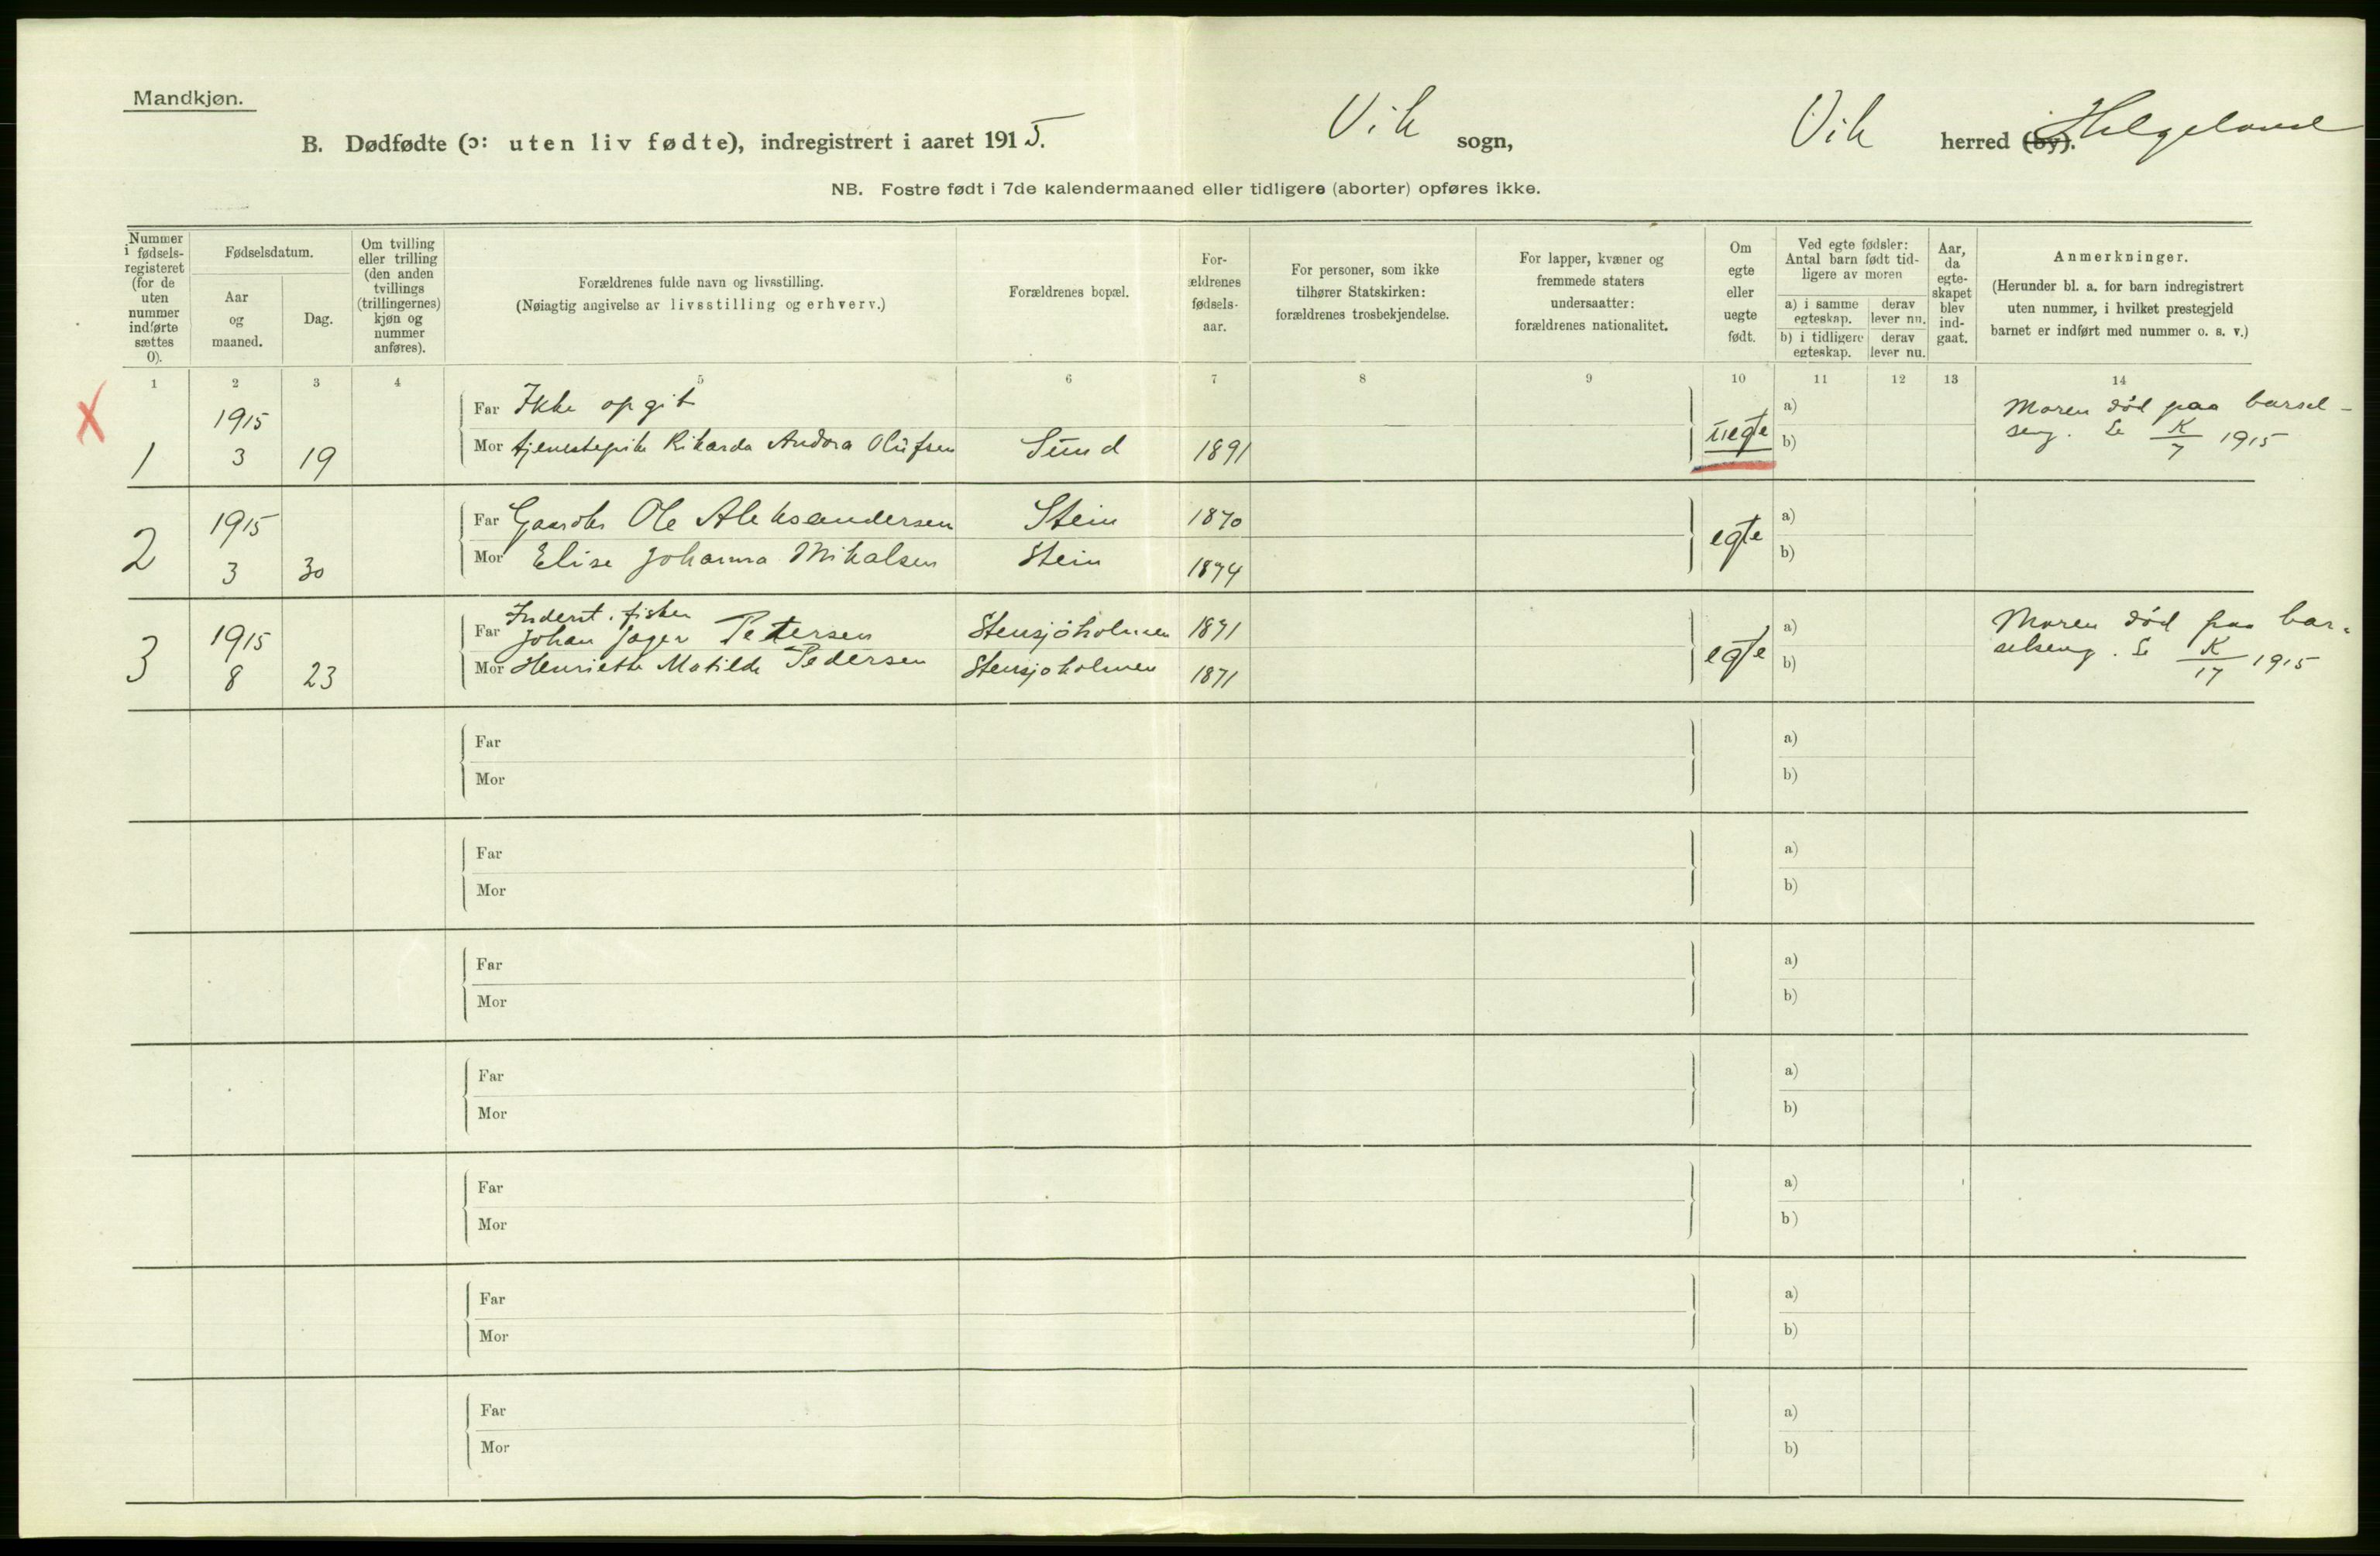 Mandkjøn.
B. Dødfødte (ɔ: uten liv fødte), indregistrert i aaret 1915. Vik sogn, Vik herred (by). Helgeland
NB. Fostre født i 7de kalendermaaned eller tidligere (aborter) opføres ikke.
Nummer i fødsels-registeret (for de uten nummer indførte sættes 0).
Fødselsdatum.
Aar og maaned.
Dag.
Om tvilling eller trilling (den anden tvillings (trillingernes) kjøn og nummer anføres).
Forældrenes fulde navn og livsstilling.
(Nøiagtig angivelse av livsstilling og erhverv.)
Forældrenes bopæl.
For-ældrenes fødsels-aar.
For personer, som ikke tilhører Statskirken: forældrenes trosbekjendelse.
For lapper, kvæner og fremmede staters undersaatter: forældrenes nationalitet.
Om egte eller uegte født.
Ved egte fødsler: Antal barn født tid-ligere av moren
a) i samme egteskap.
derav lever nu.
b) i tidligere egteskap.
derav lever nu.
Aar, da egte-skapet blev ind-gaat.
Anmerkninger.
(Herunder bl. a. for barn indregistrert uten nummer, i hvilket prestegjeld barnet er indført med nummer o. s. v.)
1 2 3 4 5 6 7 8 9 10 11 12 13 14
X
1 1915 3 19
Far Ikke opgit
Mor tjenestepike Rikarda Andora Olufsen Sund 1891
uegte
a)
b)
Moren död paa barsel-
seng. Se K/7 1915
2 1915 3 30
Far Gaardbr Ole Aleksandersen Stein 1870
Mor Elise Johanna Mikalsen Stein 1874
egte
a)
b)
3 1915 8 23
Inderst. fisker
Far Johan Jager Petersen Stensjöholmen 1871
Mor Henriette Matilde Pedersen Stensjoholmen 1871
egte
a)
b)
Moren död paa bar-
selseng. Se K/17 1915
Far a)
Mor b)
Far a)
Mor b)
Far a)
Mor b)
Far a)
Mor b)
Far a)
Mor b)
Far a)
Mor b)
Far a)
Mor b)